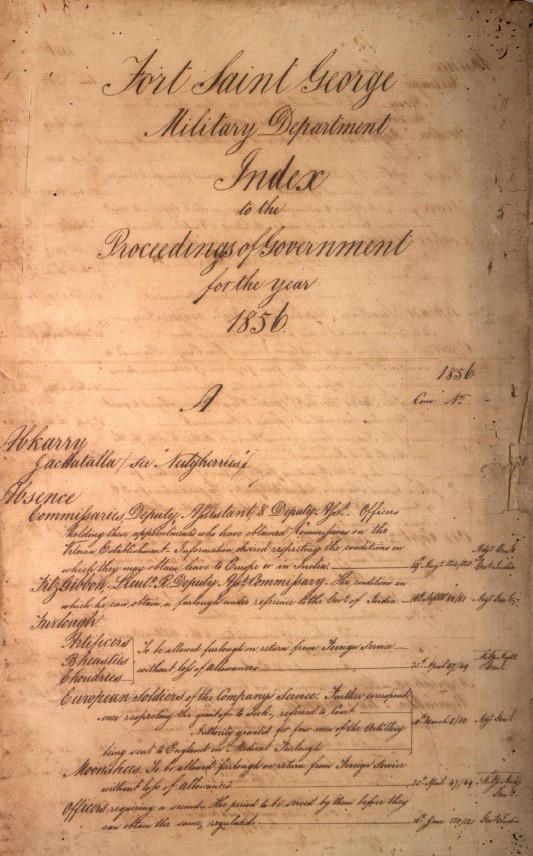 Fort Saint George
Military Department
Index
to the
Proceedings of Government
for the year
1856.
1856
Cons. No.
A
Abkarry
Jackatalla (see Neilgherries)
Absence
Commissaries, Deputy, Assistant, & Deputy Asst. Officers
holding these appointments who have obtained Commissions on the
Veteran Establishment. Information desired respecting the conditions on
which they may obtain leave to Europe or in India.
FitzGibbon, Lieut. R. Deputy Asst. Commissary. The conditions on
which he can obtain a furlough under reference to the Govt. of India
Furlough
Artificers
Bheasties
Choudries
To be allowed furlough on return from Foreign Service
without loss of Allowances
22d. April 47/49
European Soldiers of the Company's Service. Further correspond
ence respecting the grant of to Sick, referred to Court
Authority granted for four men of the Artillery
being sent to England on Medical Furlough
4th March 8/10 Adjt. Genl.
Moonshees. To be allowed furlough on return from Foreign Service
without loss of Allowances
22d. April 47/49
Officers requiring a second. The period to be served by them before they
can obtain the same, regulated
June 120/121 Govt. India